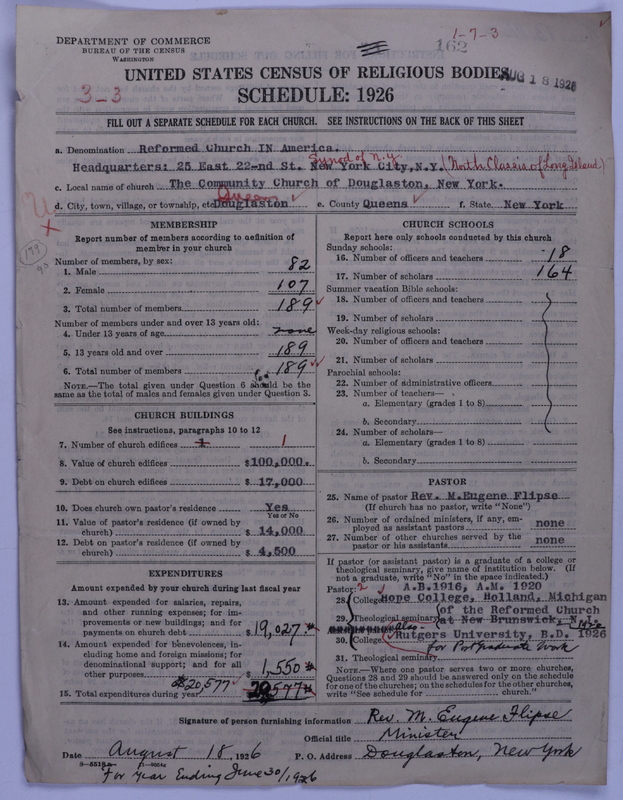 DEPARTMENT OF COMMERCE
BUREAU OF THE CENSUS
WASHINGTON
1-7-3
162
UNITED STATES CENSUS OF RELIGIOUS BODIES
AUG 18 1926
3-3
SCHEDULE: 1926
FILL OUT A SEPARATE SCHEDULE FOR EACH CHURCH. SEE INSTRUCTIONS ON THE BACK OF THIS SHEET
a. Denomination Reformed Church IN America.
Synod of N.Y.
Headquarters: 25 East 22-nd St. New York City, N.Y. (North Classis of Long Island)
c. Local name of church The Community Church of Douglaston, New York.
Queens
d. City, town, village, or township, etc. Douglaston e. County Queens f. State New York
179
MEMBERSHIP
Report number of members according to definition of
member in your church
Number of members, by sex:
1. Male 82
2. Female 107
3. Total number of members 189
Number of members under and over 13 years old:
4. Under 13 years of age none
5. 13 years old and over 189
6. Total number of members 189
NOTE.—The total given under Question 6 should be the
same as the total of males and females given under Question 3.
CHURCH BUILDINGS
See instructions, paragraphs 10 to 12
7. Number of church edifices 1 1
8. Value of church edifices $100,000.
9. Debt on church edifices $ 17,000
10. Does church own pastor's residence Yes
Yes or No
11. Value of pastor's residence (if owned by
church) $ 14,000
12. Debt on pastor's residence (if owned by
church) $ 4,500
EXPENDITURES
Amount expended by your church during last fiscal year
13. Amount expended for salaries, repairs,
and other running expenses; for im-
provements or new buildings; and for
payments on church debt $ 19,027
14. Amount expended for benevolences, in-
cluding home and foreign missions; for
denominational support; and for all
other purposes $ 1,550
$20,577
15. Total expenditures during year $ 20,577
CHURCH SCHOOLS
Report here only schools conducted by this church
Sunday schools:
16. Number of officers and teachers 18
17. Number of scholars 164
Summer vacation Bible schools:
18. Number of officers and teachers
19. Number of scholars
Week-day religious schools:
20. Number of officers and teachers
21. Number of scholars
Parochial schools:
22. Number of administrative officers
23. Number of teachers—
a. Elementary (grades 1 to 8)
b. Secondary
24. Number of scholars—
a. Elementary (grades 1 to 8)
b. Secondary
PASTOR
25. Name of pastor Rev. M.Eugene Flipse
(If church has no pastor, write "None")
26. Number of ordained ministers, if any, em-
ployed as assistant pastors none
27. Number of other churches served by the
pastor or his assistants none
If pastor (or assistant pastor) is a graduate of a college or
theological seminary, give name of institution below. (If
not a graduate, write "No" in the space indicated.)
Pastor: 2 A.B.1916, A.M. 1920
28. College Hope College, Holland, Michigan
of the Reformed Church
29. Theological seminary at New Brunswick, N
also
30. College Rutgers University, B.D. 1926
for Postgraduate Work
31. Theological seminary
NOTE.—Where one pastor serves two or more churches,
Questions 28 and 29 should be answered only on the schedule
for one of the churches; on the schedules for the other churches,
write "See schedule for church."
Signature of person furnishing information Rev. M. Eugene Flipse
Official title Minister
Date August 18, 1926 P. O. Address Douglaston, New York
For year Ending June 30/1926